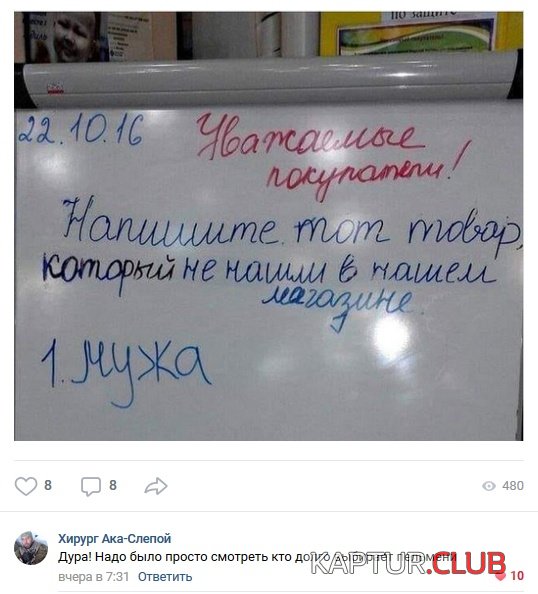 по защите
22.10.16
Уважаемые
покупатели!
Напишите тот товар,
который не нашли в нашем
магазине.
1. Мужа
8
8
480
Хирург Ака-Слепой
Дура! Надо было просто смотреть кто долго выбирает пельмени
вчера в 7:31 Ответить
10
KAPTUR.CLUB